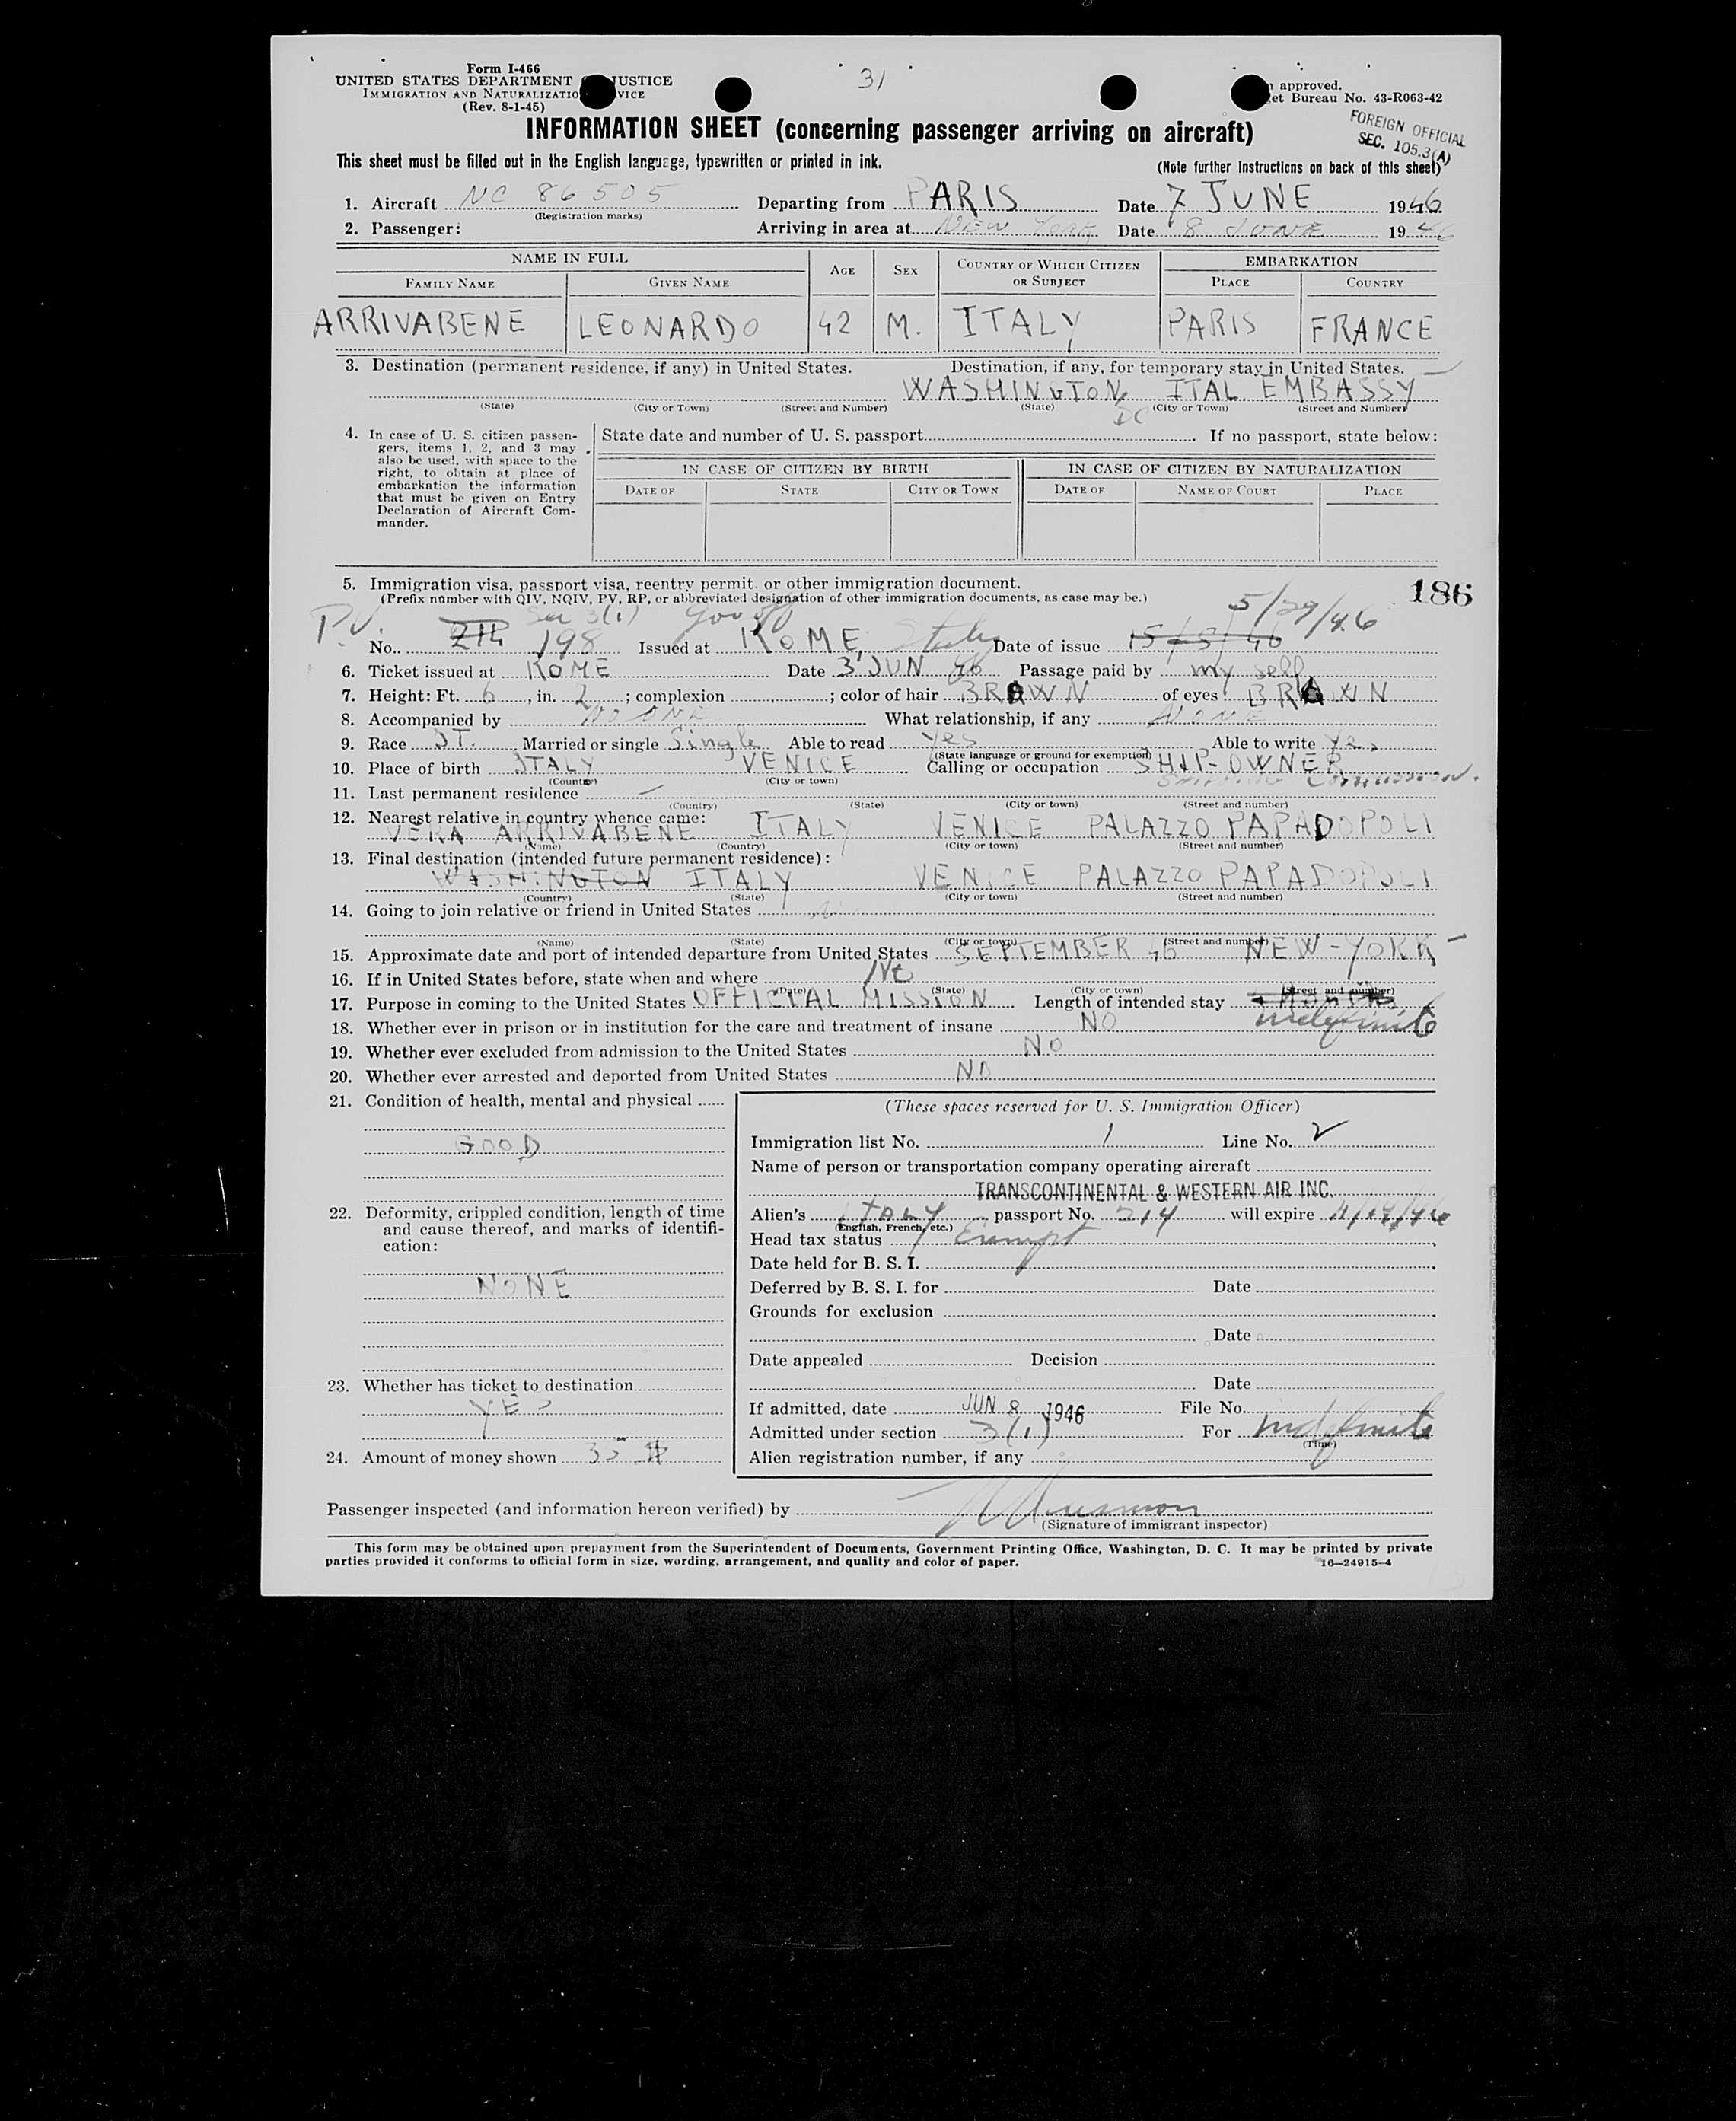 31
Form I-466
UNITED STATES DEPARTMENT JUSTICE
IMMIGRATION AND NATURALIZATIO VICE
(Rev. 8-1-45)
approved.
et Bureau No. 43-R063-42
INFORMATION SHEET (concerning passenger arriving on aircraft)
FOREIGN OFFICIAL
SEC. 105.3(A)
This sheet must be filled out in the English language, typewritten or printed in ink.
(Note further instructions on back of this sheet)
1. Aircraft NC 86505 Departing from PARIS Date 7 JUNE 1946
(Registration marks)
2. Passenger: Arriving in area at New York Date 8 JUNE 1946
NAME IN FULL AGE SEX COUNTRY OF WHICH CITIZEN OR SUBJECT EMBARKATION
FAMILY NAME GIVEN NAME PLACE COUNTRY
ARRIVABENE LEONARDO 42 M. ITALY PARIS FRANCE
3. Destination (permanent residence, if any) in United States. Destination, if any, for temporary stay in United States.
WASHINGTON DC ITAL EMBASSY
(State) (City or Town) (Street and Number) (State) (City or Town) (Street and Number)
4. In case of U. S. citizen passen-
gers, items 1, 2, and 3 may
also be used, with space to the
right, to obtain at place of
embarkation the information
that must be given on Entry
Declaration of Aircraft Com-
mander.
State date and number of U. S. passport If no passport, state below:
IN CASE OF CITIZEN BY BIRTH IN CASE OF CITIZEN BY NATURALIZATION
DATE OF STATE CITY OR TOWN DATE OF NAME OF COURT PLACE
5. Immigration visa, passport visa, reentry permit, or other immigration document. 186
(Prefix number with QIV, NQIV, PV, RP, or abbreviated designation of other immigration documents, as case may be.)
P.V. Sec 3(1) Gov off 5/29/46
No. 214 198 Issued at ROME, Italy Date of issue 15/5/46
6. Ticket issued at ROME Date 3 JUN 46 Passage paid by my self
7. Height: Ft. 6, in. 2; complexion ; color of hair BROWN of eyes BROWN
8. Accompanied by NO ONE What relationship, if any NONE
9. Race IT. Married or single Single Able to read Yes Able to write Yes
(State language or ground for exemption)
10. Place of birth ITALY VENICE Calling or occupation SHIP-OWNER
(Country) (City or town)
11. Last permanent residence
(Country) (State) (City or town) (Street and number)
12. Nearest relative in country whence came:
VERA ARRIVABENE ITALY VENICE PALAZZO PAPADOPOLI
(Name) (Country) (City or town) (Street and number)
13. Final destination (intended future permanent residence):
WASHINGTON ITALY VENICE PALAZZO PAPADOPOLI
(Country) (State) (City or town) (Street and number)
14. Going to join relative or friend in United States
(Name) (State) (City or town) (Street and number)
15. Approximate date and port of intended departure from United States SEPTEMBER 46 NEW-YORK
16. If in United States before, state when and where No
(Date) (State) (City or town) (Street and number)
17. Purpose in coming to the United States OFFICIAL MISSION Length of intended stay indefinite
18. Whether ever in prison or in institution for the care and treatment of insane NO
19. Whether ever excluded from admission to the United States NO
20. Whether ever arrested and deported from United States NO
21. Condition of health, mental and physical
GOOD
22. Deformity, crippled condition, length of time
and cause thereof, and marks of identifi-
cation:
NONE
23. Whether has ticket to destination
YES
24. Amount of money shown 35 $
(These spaces reserved for U. S. Immigration Officer)
Immigration list No. 1 Line No. 2
Name of person or transportation company operating aircraft
TRANSCONTINENTAL & WESTERN AIR INC.
Alien's ITALY passport No. 214 will expire
(English, French, etc.)
Head tax status Exempt
Date held for B. S. I.
Deferred by B. S. I. for Date
Grounds for exclusion
Date
Date appealed Decision
Date
If admitted, date JUN 8 1946 File No.
Admitted under section 3(1) For indefinite
(Time)
Alien registration number, if any
Passenger inspected (and information hereon verified) by
(Signature of immigrant inspector)
This form may be obtained upon prepayment from the Superintendent of Documents, Government Printing Office, Washington, D. C. It may be printed by private
parties provided it conforms to official form in size, wording, arrangement, and quality and color of paper. 16—24915-4